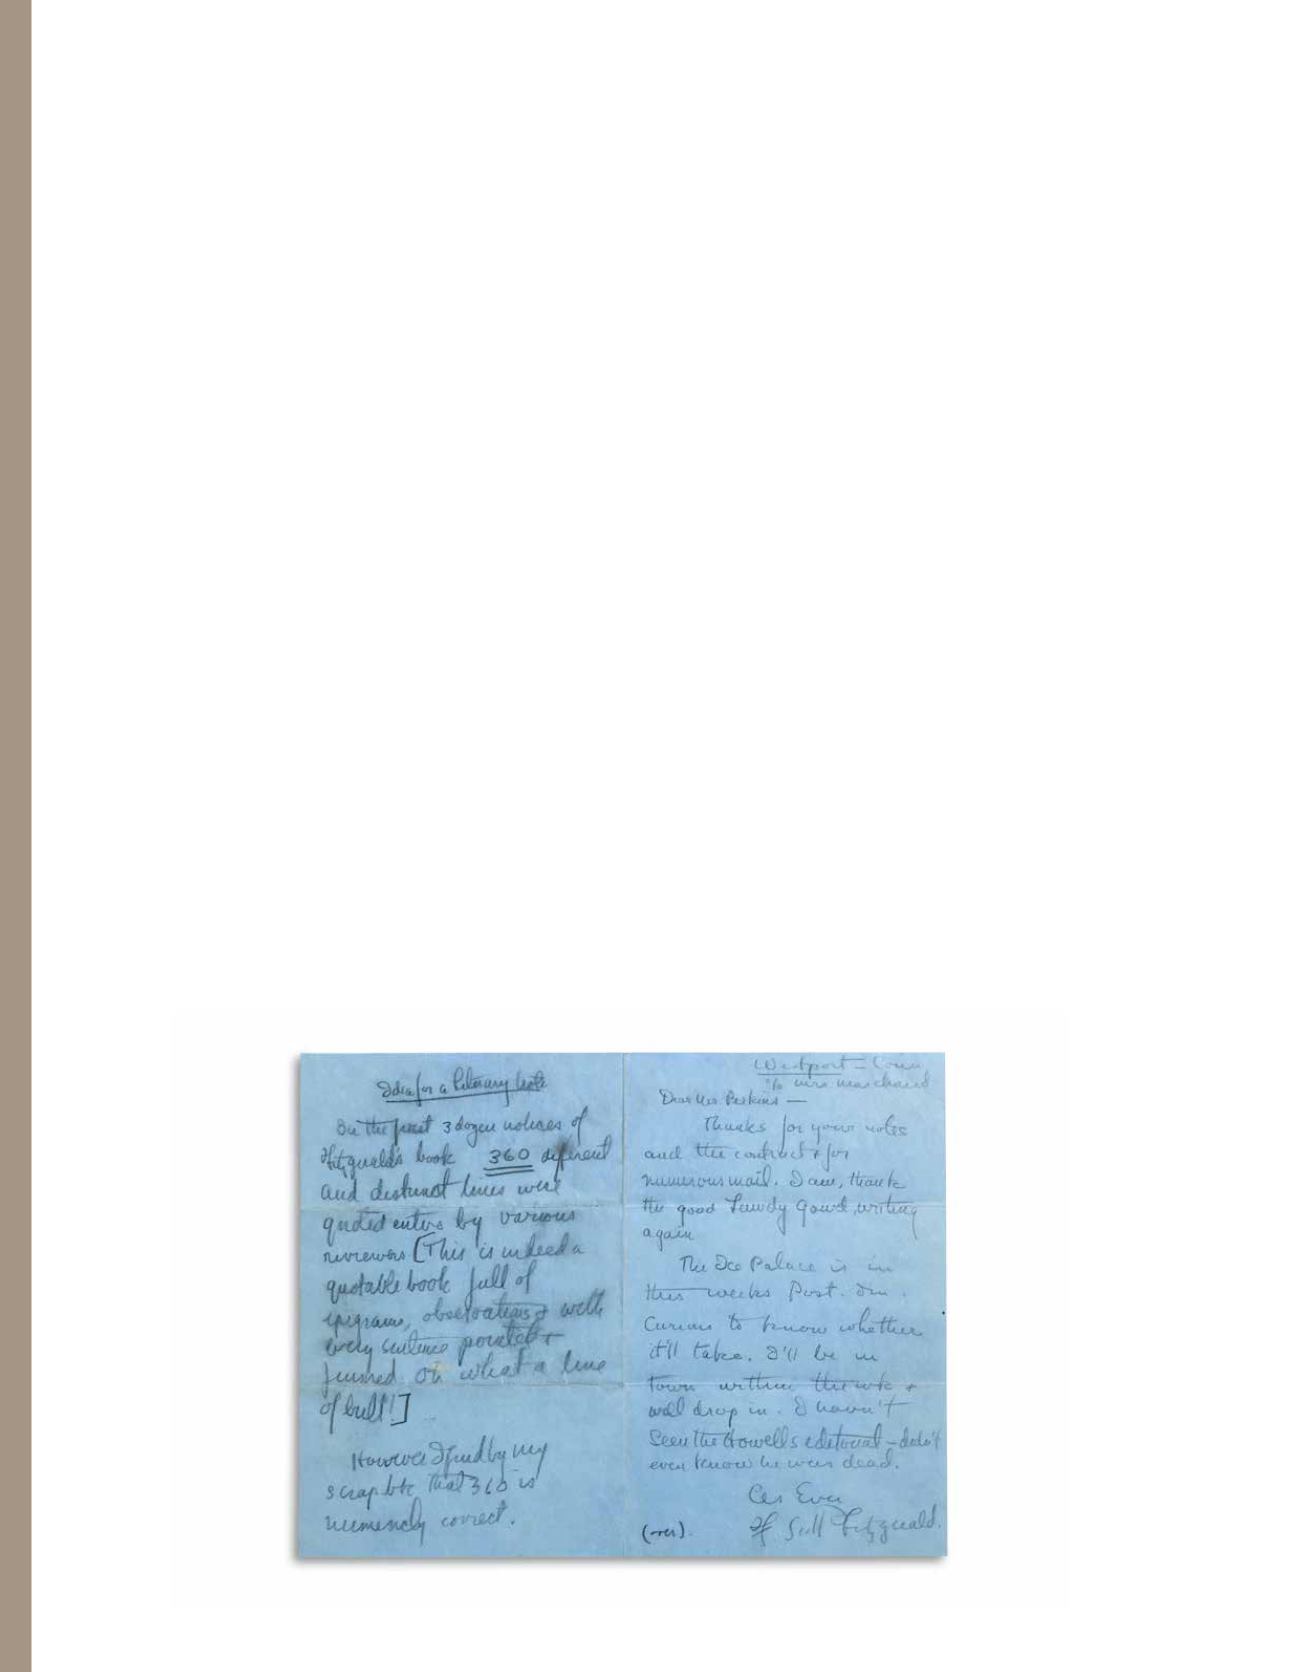 Idea for a Literary Note
In the first 3 dozen notices of
Fitzgerald's book 360 different
and distinct lines were
quoted entire by various
reviewers [This is indeed a
quotable book full of
epigrams, observations + with
every sentence pointed +
finished Oh what a line
of bull!]
However I find by my
scrap bk that 360 is
correct.
Westport – Conn
c/o Mrs Marchand
Dear Mr Perkins —
Thanks for your notes
and the contract + for
numerous mail. I am, thank
the good Lawdy Gawd, writing
again
The Ice Palace is in
this weeks Post. I'm
curious to know whether
it'll take. I'll be in
town within the wk +
will drop in. I haven't
seen the Howells editorial – didn't
even know he was dead.
As Ever
F Scott Fitzgerald.